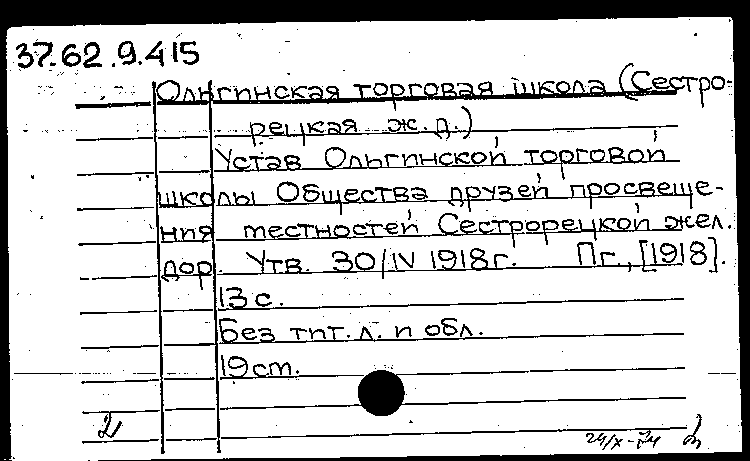 37.62.9.415
Ольгинская торговая школа (Сестро-
рецкая ж.д.)
Устав Ольгинской торговой
школы Общества друзей просвеще-
ния местностей Сестрорецкой жел.
дор. Утв. 30/IV 1918г. Пг., [1918].
13 с.
Без тит. л. и обл.
19 см.
2
24/X-74